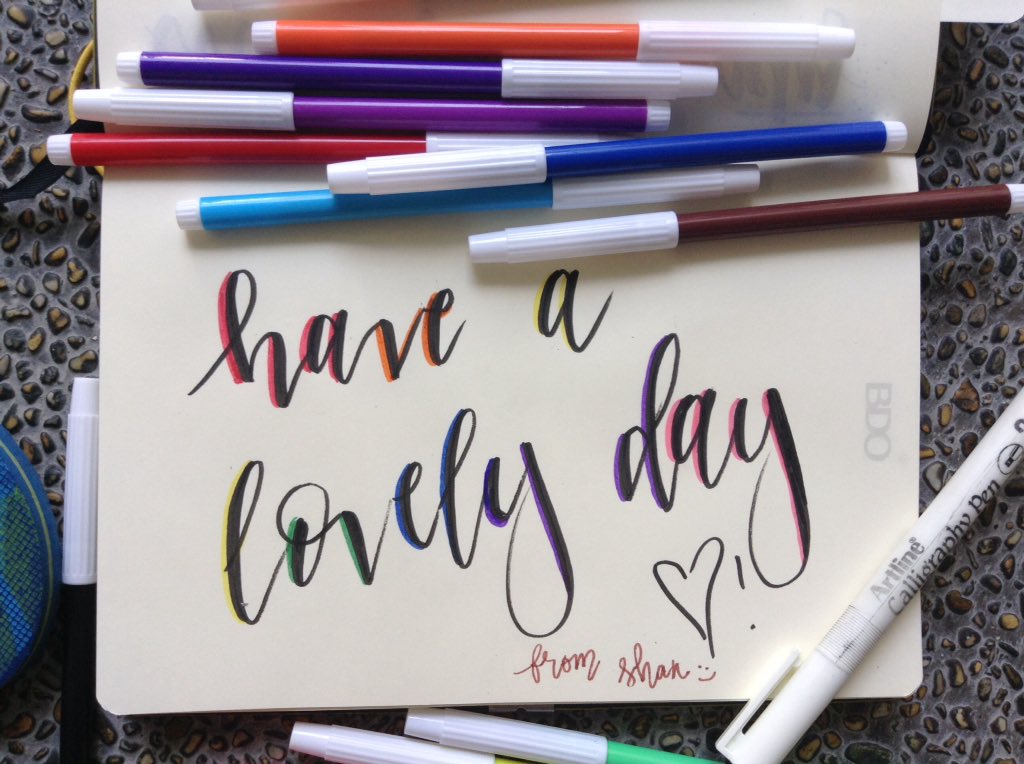 have a
lovely day
!
from shan :)
BDO
Artline
Calligraphy Pen